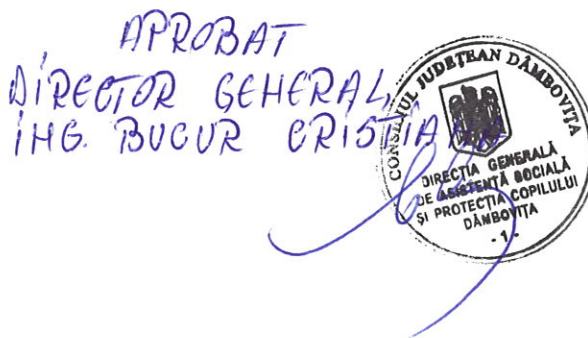 APROBAT
DIRECTOR GENERAL,
ING. BUCUR CRISTIAN
CONSILIUL JUDEȚEAN DÂMBOVIȚA
DIRECȚIA GENERALĂ
DE ASISTENȚĂ SOCIALĂ
ȘI PROTECȚIA COPILULUI
DÂMBOVIȚA
- 1 -